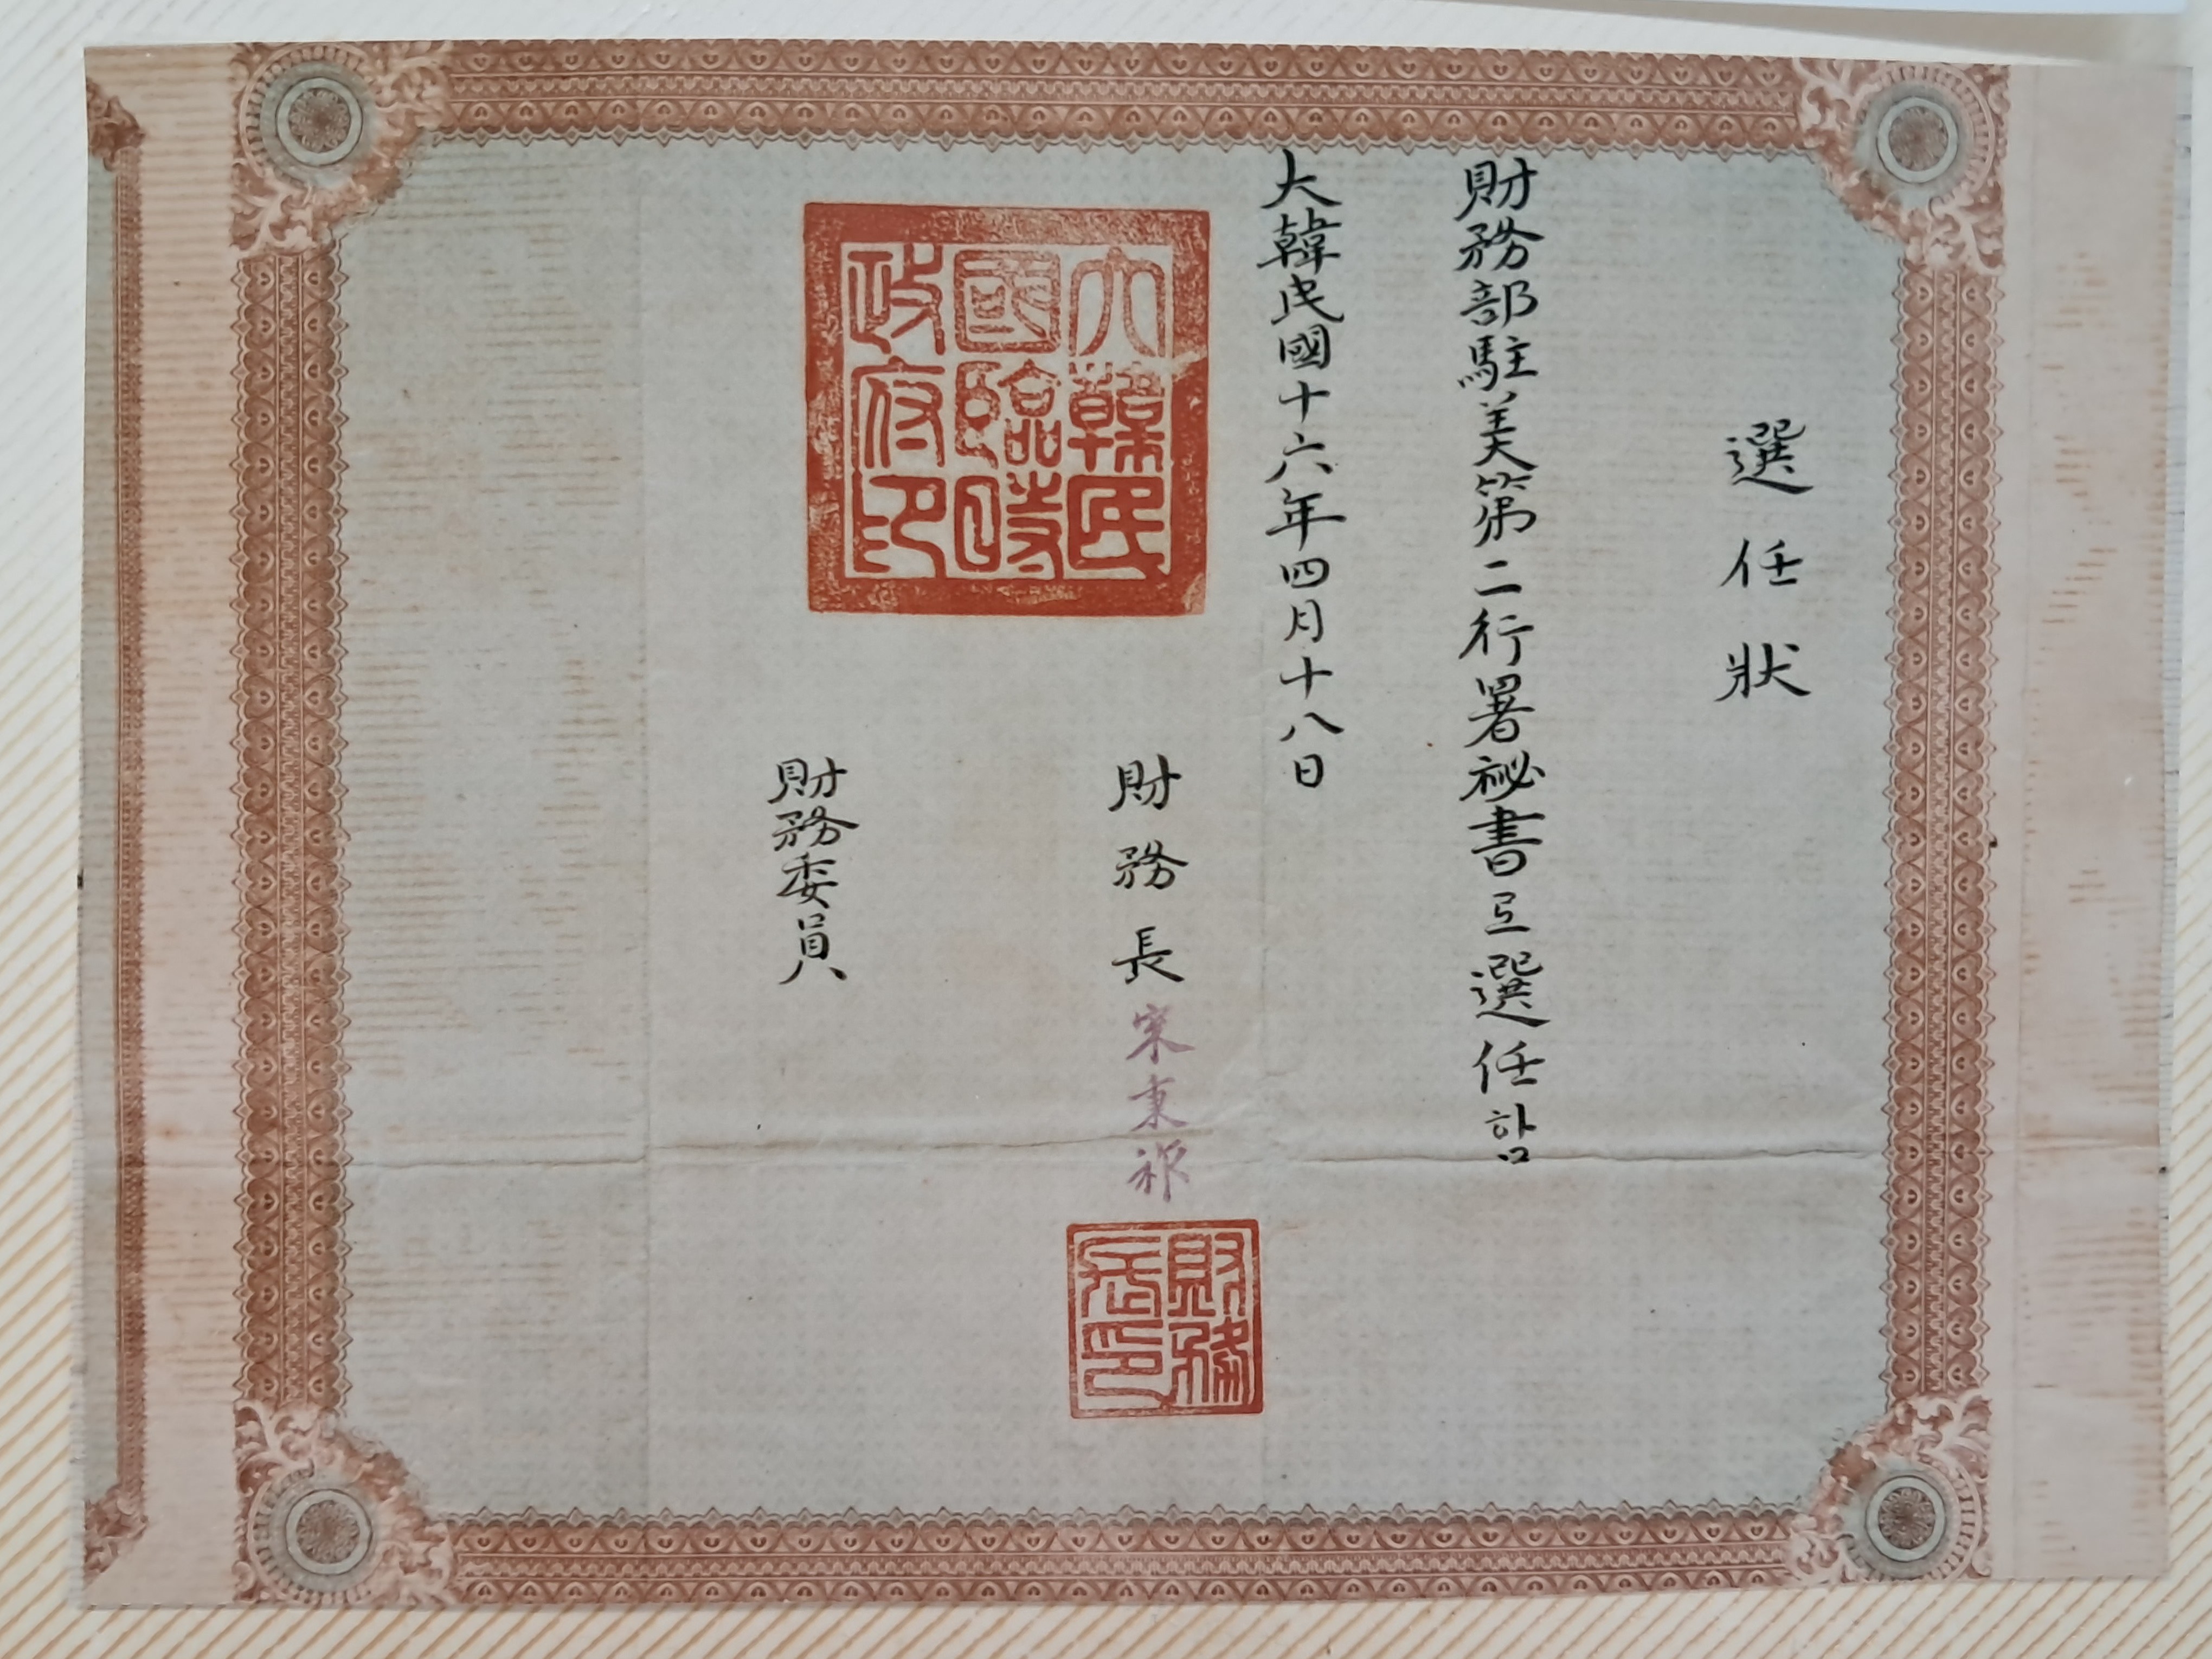 選任狀
財務部駐美第二行署祕書로選任함
大韓民國十六年四月十八日
大韓民國臨時政府印
財務長 宋秉祚
財務長印
財務委員